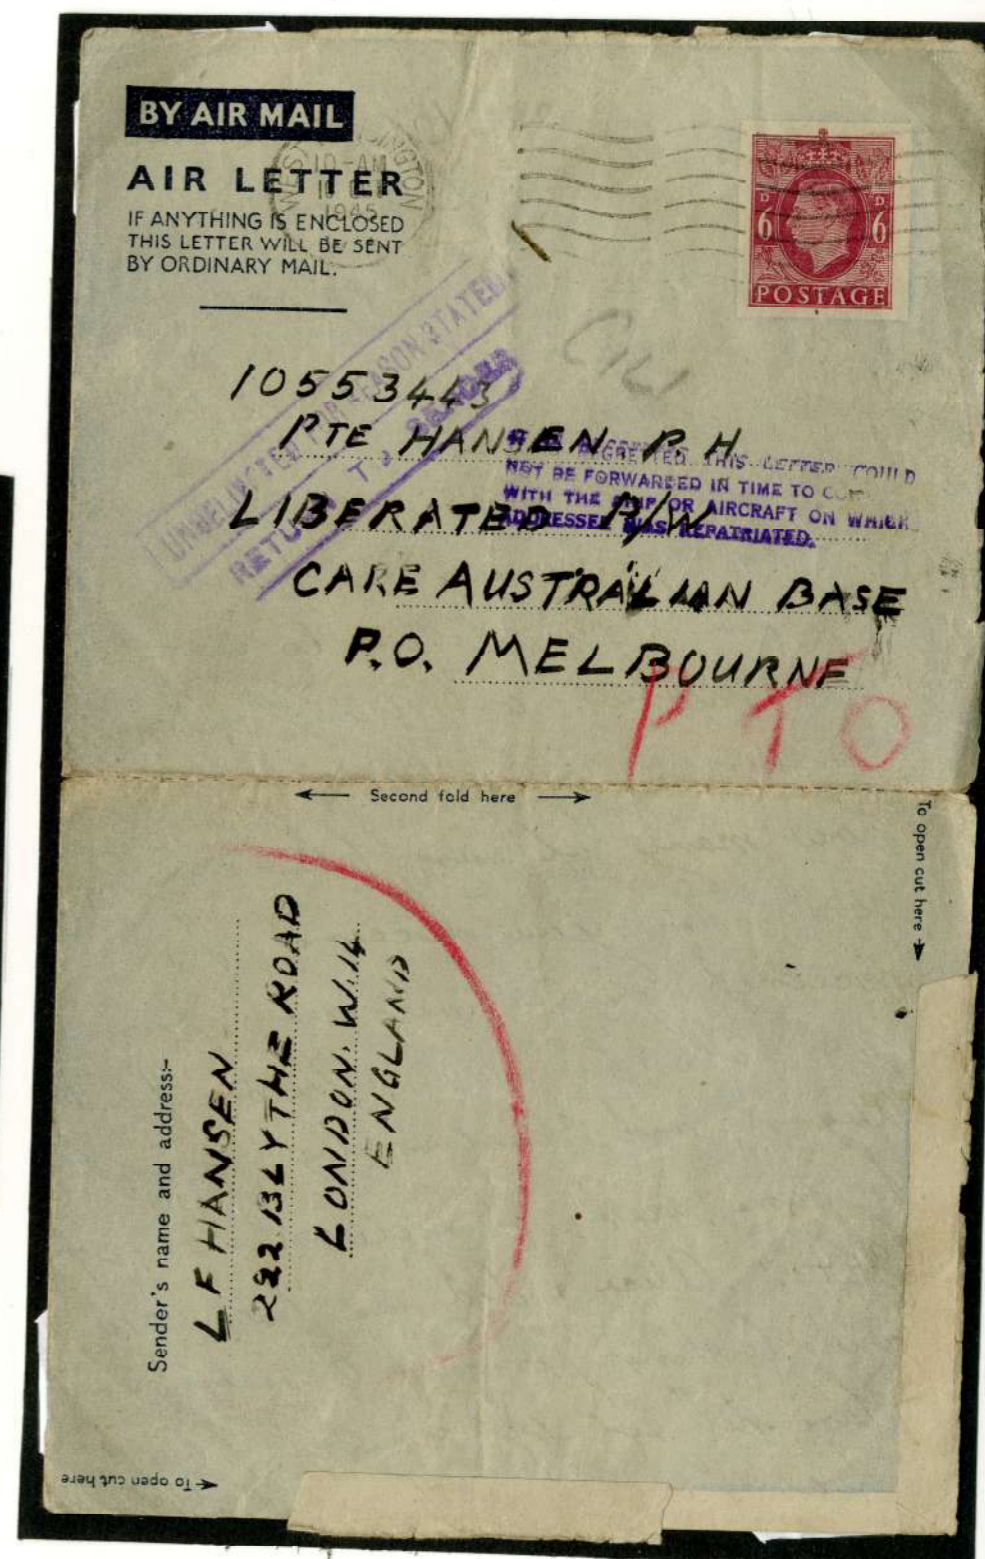 BY AIR MAIL
AIR LETTER
IF ANYTHING IS ENCLOSED
THIS LETTER WILL BE SENT
BY ORDINARY MAIL.
10-AM
1945
D D
6 6
POSTAGE
UNDELIVERED FOR REASON STATED
RETURN TO SENDER
10553443
PTE HANSEN P.H
LIBERATED P/W
CARE AUSTRALIAN BASE
P.O. MELBOURNE
REGRETTED THIS LETTER COULD
NOT BE FORWARDED IN TIME TO
WITH THE SHIP OR AIRCRAFT ON WHICH
ADDRESSEE WAS REPATRIATED.
PTO
← Second fold here →
To open cut here →
Sender's name and address:-
L F HANSEN
222 BLYTHE ROAD
LONDON. W.14
ENGLAND
← To open cut here